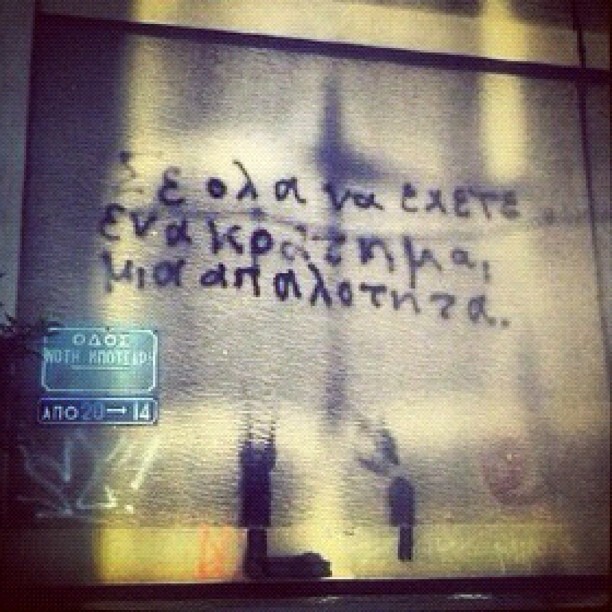 Σε ολα να εχετε
ενα κρατημα,
μια απαλοτητα.
ΟΔΟΣ
ΝΟΤΗ ΜΠΟΤΣΑΡΗ
ΑΠΟ 20 → 14